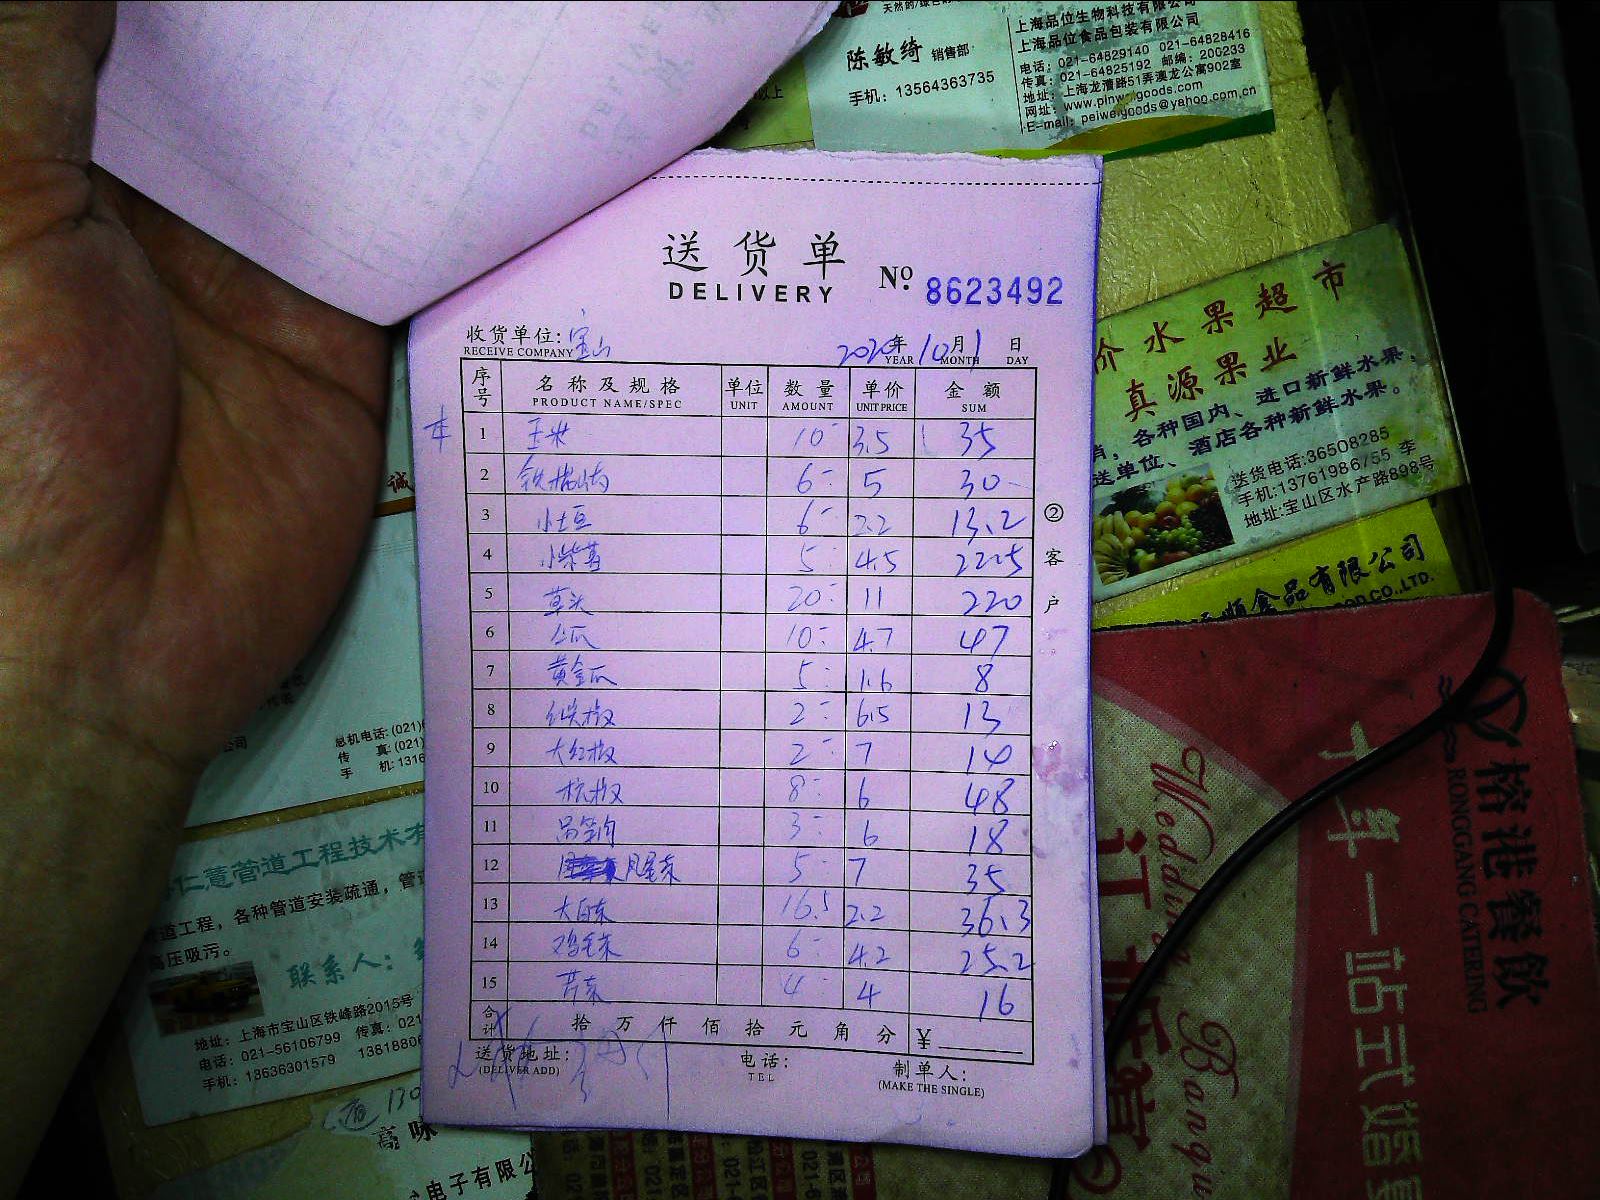 陈敏绮 销售部
手机：13564363735
上海品位生物科技有限公司
上海品位食品包装有限公司
电话：021-64829140 021-64828416
传真：021-64825192 邮编：200233
地址：上海龙漕路51弄澳龙公寓902室
E-mail: peiweigoods@yahoo.com.cn
送货单
DELIVERY
No. 8623492
收货单位：宝山
RECEIVE COMPANY
2020年10月1日
YEAR MONTH DAY
序号 名称及规格 单位 数量 单价 金额
PRODUCT NAME/SPEC UNIT AMOUNT UNIT PRICE SUM
1 玉米 10 3.5 35
2 铁棍山药 6 5 30
3 小土豆 6 2.2 13.2
4 小紫薯 5 4.5 22.5
5 草头 20 11 220
6 10 4.7 47
7 黄金瓜 5 1.6 8
8 2 6.5 13
9 大红椒 2 7 14
10 杭椒 8 6 48
11 3 6 18
12 凤尾菜 5 7 35
13 大白菜 16.5 2.2 36.3
14 鸡毛菜 6 4.2 25.2
15 芹菜 4 4 16
合计 拾万仟佰拾元角分 ¥
送货地址： 电话： 制单人：
(DELIVER ADD) TEL (MAKE THE SINGLE)
②客户
价水果超市
真源果业
各种国内、进口新鲜水果，
送单位、酒店各种新鲜水果。
送货电话:36508285
手机:13761986755 李
地址:宝山区水产路898号
顺食品有限公司
CO.,LTD.
裕港餐饮
RONGGANG CATERING
一站式婚宴
Wedding Banquet
诚
公司
总机电话:(021)
传 真:(021)
手 机:1316
仁慧管道工程技术有
道工程，各种管道安装疏通，管道
高压吸污。
联系人：
地址：上海市宝山区铁峰路2015号
电话：021-56106799 传真：021
手机：13636301579 13818806
130
高味
电子有限公